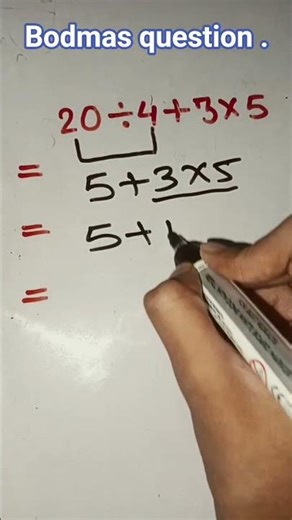 Bodmas question .
20÷4+3×5
= 5+3×5
= 5+1
=